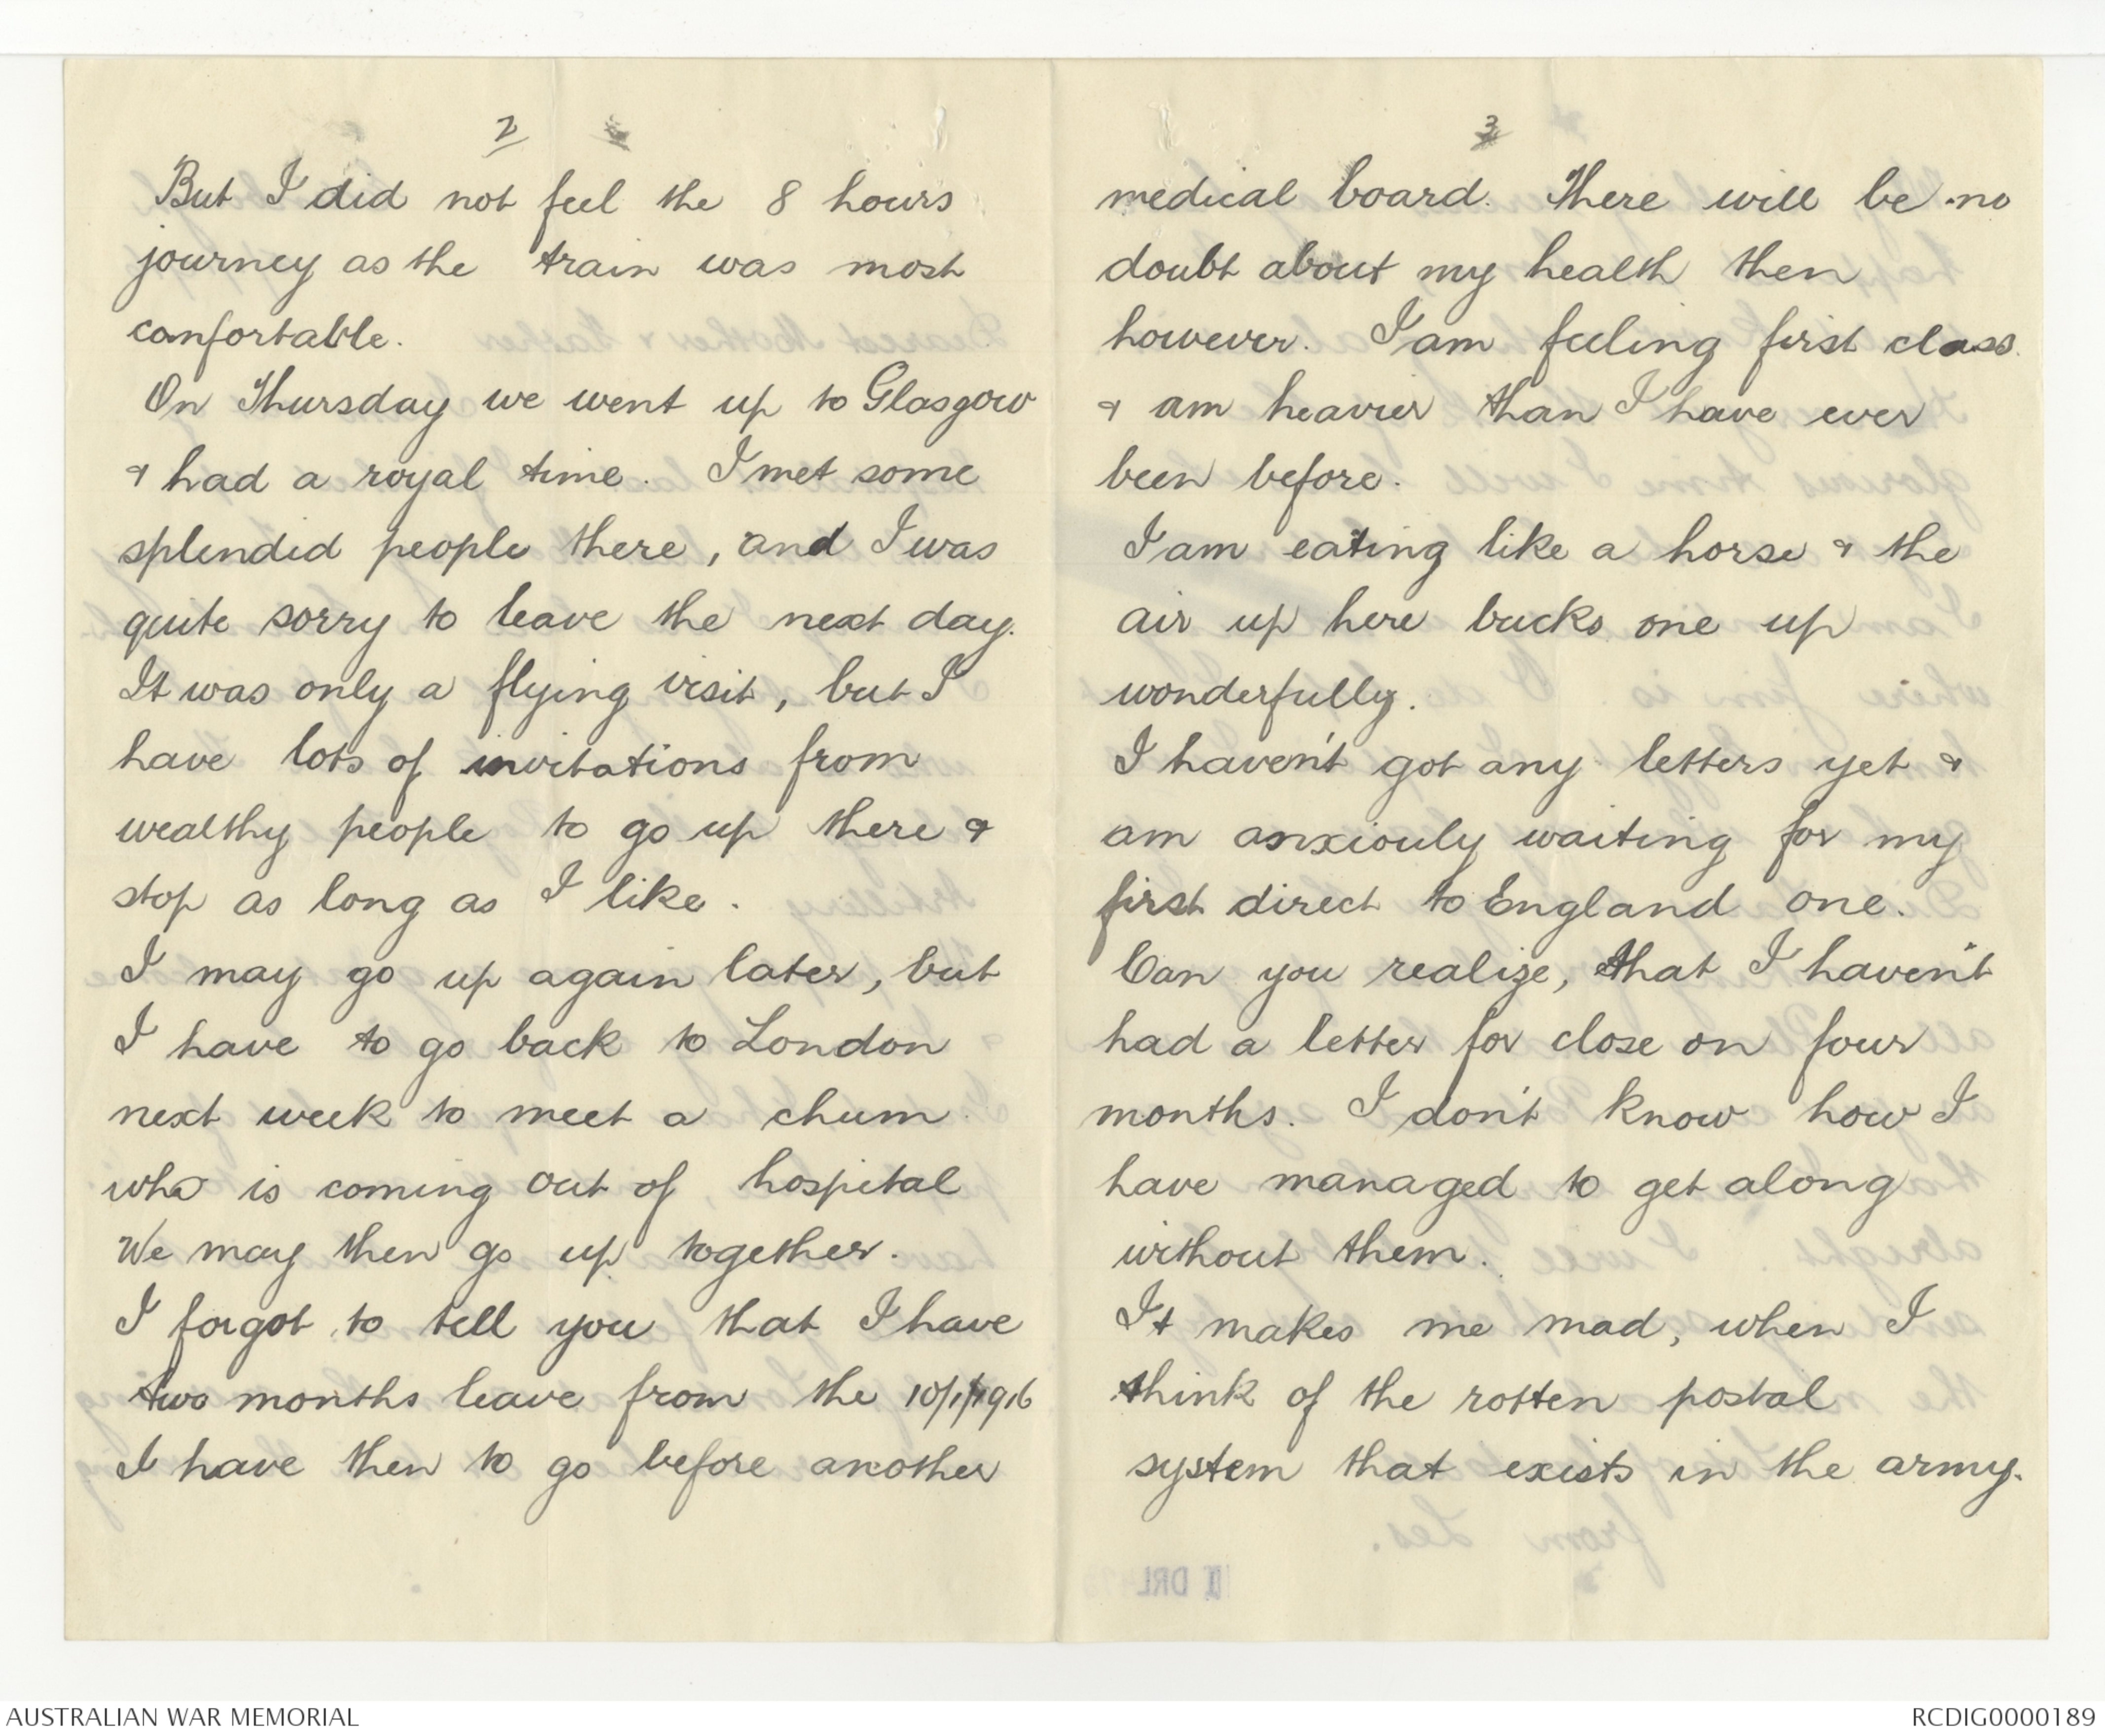 2
But I did not feel the 8 hours
journey as the train was most
confortable.
On Thursday we went up to Glasgow
& had a royal time. I met some
splendid people there, and I was
quite sorry to leave the next day.
It was only a flying visit, but I
have lots of invitations from
wealthy people to go up there &
stop as long as I like.
I may go up again later, but
I have to go back to London
next week to meet a chum
who is coming out of hospital
We may then go up together.
I forgot to tell you that I have
two months leave from the 10/1/1916
I have then to go before another
3
medical board. There will be no
doubt about my health then
however. I am feeling first class.
& am heavier than I have ever
been before.
I am eating like a horse & the
air up here bucks one up
wonderfully.
I haven't got any letters yet &
am anxiouly waiting for my
first direct to England one.
Can you realize, that I haven't
had a letter for close on four
months. I don't know how I
have managed to get along
without them.
It makes me mad, when I
think of the rotten postal
system that exists in the army.
AUSTRALIAN WAR MEMORIAL
RCDIG0000189